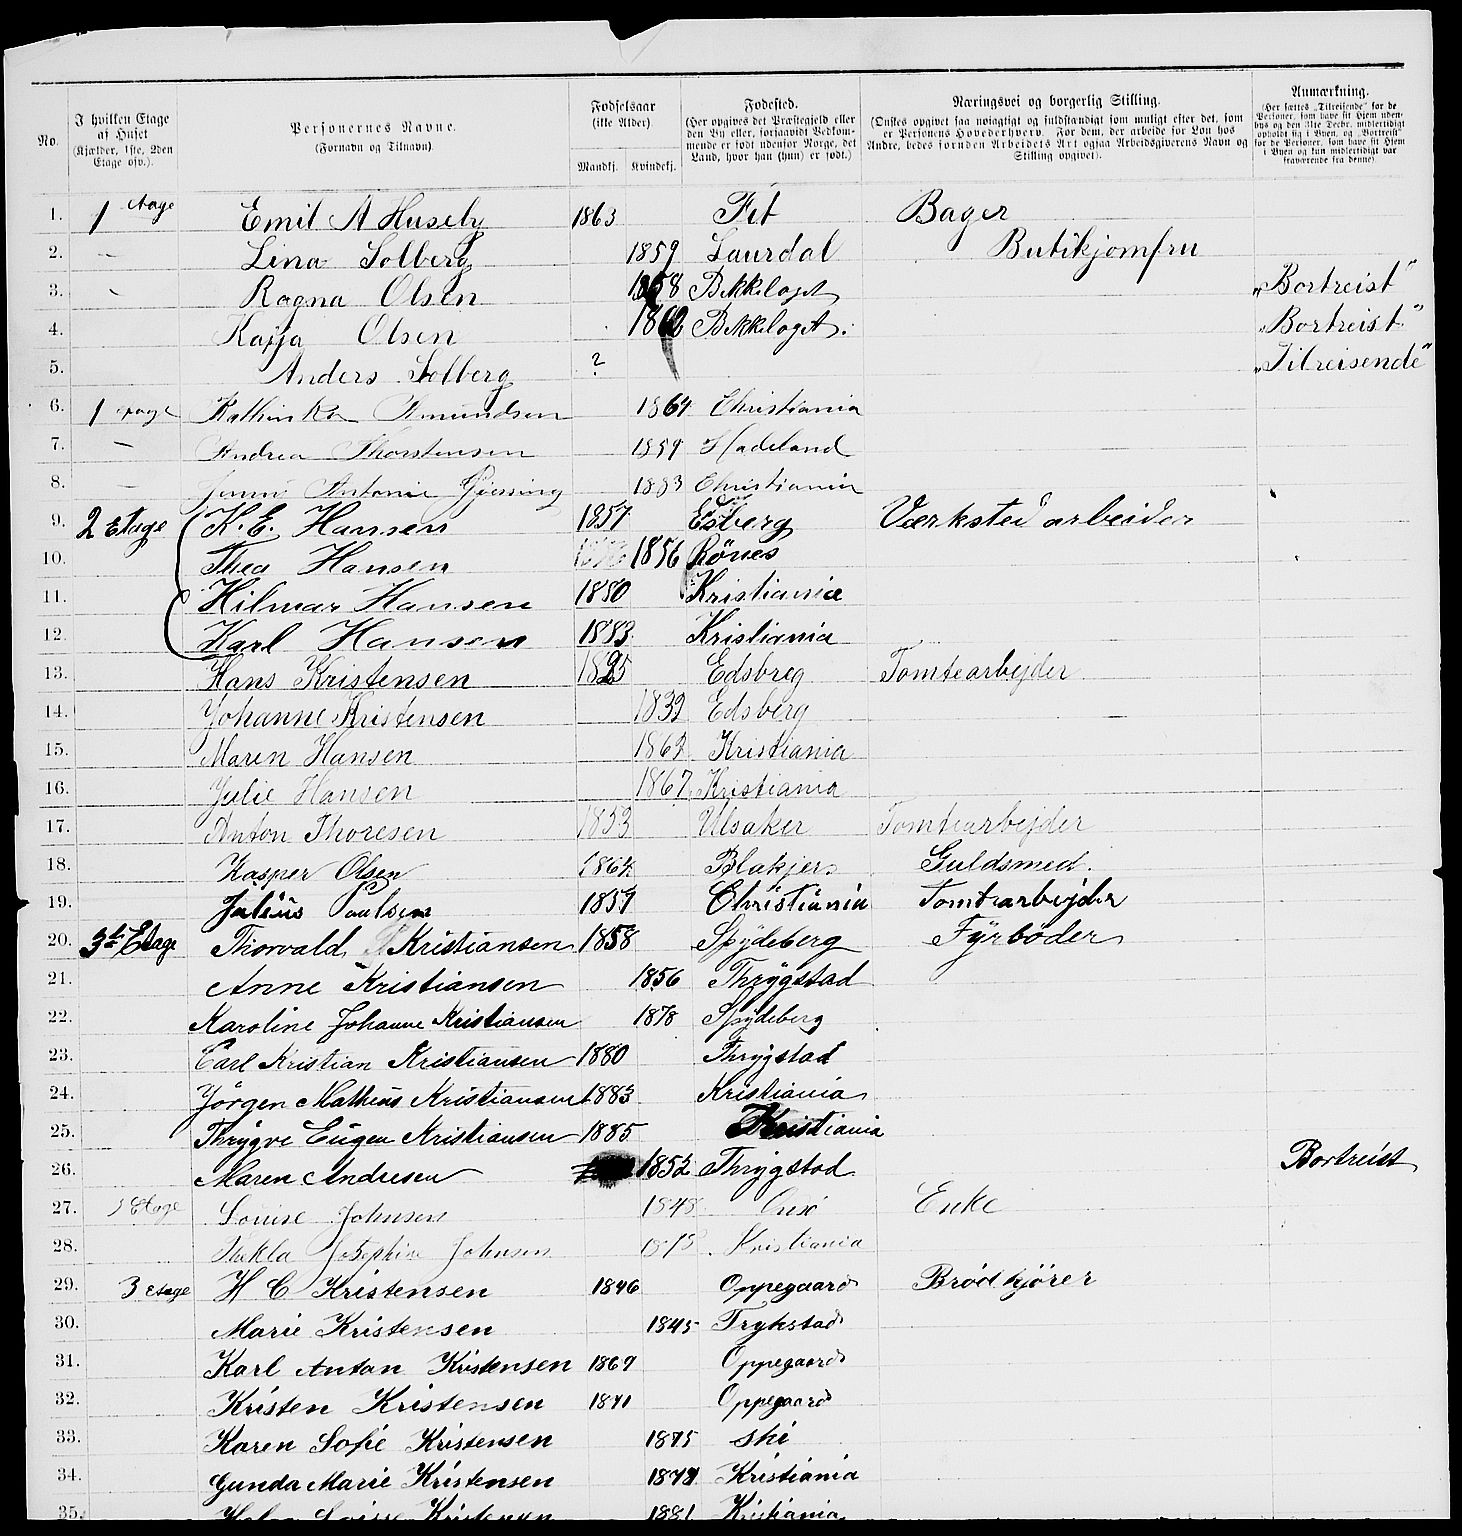 No.
I hvilken Etage af Huset (Kjælder, 1ste, 2den Etage osv.).
Personernes Navne. (Fornavn og Tilnavn).
Fødselsaar (ikke Alder). Mandkj. Kvindekj.
Fødested. (Her opgives det Præstegjeld eller den By eller, forsaavidt Vedkommende er født udenfor Norge, det Land, hvor han (hun) er født.)
Næringsvei og borgerlig Stilling. (Ønskes opgivet saa nøiagtigt og fuldstændigt som muligt efter det, som er Personens Hovederhverv. For dem, der arbeide for Løn hos Andre, bedes foruden Arbeidets Art ogsaa Arbeidsgiverens Navn og Stilling opgivet).
Anmærkning. (Her sættes „Tilreisende" for de Personer, som have sit Hjem udenbys og den 31te Decbr. midlertidigt opholdt sig i Byen, og „Bortreist" for de Personer, som have sit Hjem i Byen og kun midlertidigt var fraværende fra denne)
1. 1 Etage Emil A Huseby 1863 Fet Bager
2. – Lina Solberg 1859 Laurdal Butikjomfru
3. – Ragna Olsen 1858 Bekkelaget „Bortreist"
4. Kaja Olsen Bekkelaget. „Bortreist"
5. Anders Solberg ? „Tilreisende"
6. 1 etage Kathinka Amundsen 1864 Christiania
7. – Andrea Thorstensen 1859 Hadeland
8. – Antonie Gjessing 1883 Christiania
9. 2 Etage K. E. Hansen 1857 Værksted arbeider
10. Thea Hansen 1856 Rönes
11. Hilmar Hansen 1880 Kristiania
12. Karl Hansen 1883 Kristiania
13. Hans Kristensen 1825 Edsbreg Tomtearbejder
14. Johanne Kristensen 1832 Edsberg
15. Maren Hansen 1862 Kristiania
16. Julie Hansen 1867 Kristiania
17. Anton Thoresen 1853 Ulsaker Tomtearbejder
18. Kasper Olsen 1864 Blakjer Guldsmed.
19. Julius Paulsen 1859 Christiania Tomtearbejder
20. 3die Etage Thorvald Kristiansen 1858 Spydeberg Fyrbøder
21. Anne Kristiansen 1856 Thrygstad
22. Karoline Johanne Kristiansen 1878 Spydeberg
23. Carl Kristian Kristiansen 1880 Thrygstad
24. Jörgen Matheus Kristiansen 1883 Kristiania
25. Thrygve Eugen Kristiansen 1885 Kristiania
26. Maren Andresen 1852 Thrygstad Bortreist
27. Etage Louise Johnsen 1848 Enke
28. Thekla Josephine Johnsen 1875 Kristiania
29. 3 etage H C Kristensen 1846 Oppegaard Brødkjører
30. Marie Kristensen 1845 Trykstad
31. Karl Anton Kristensen 1869 Oppegaard
32. Kristen Kristensen 1871 Oppegaard
33. Karen Sofie Kristensen 1875 Ski
34. Gunda Marie Kristensen Kristiania
35. Kristensen 1881 Kristiania